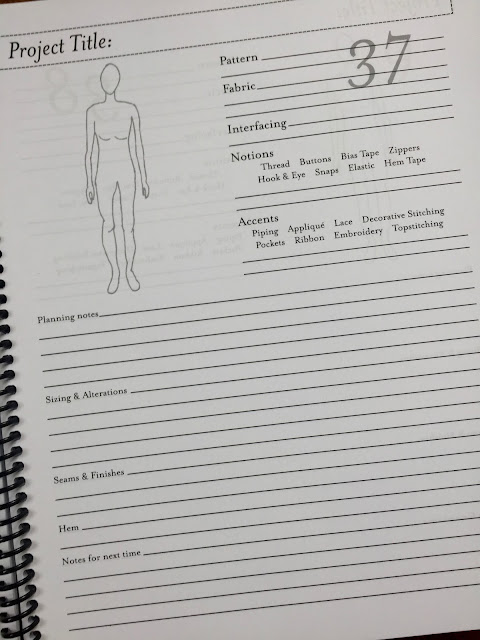 Project Title:
37
Pattern
Fabric
Interfacing
Notions
Thread Buttons Bias Tape Zippers
Hook & Eye Snaps Elastic Hem Tape
Accents
Piping Appliqué Lace Decorative Stitching
Pockets Ribbon Embroidery Topstitching
Planning notes
Sizing & Alterations
Seams & Finishes
Hem
Notes for next time